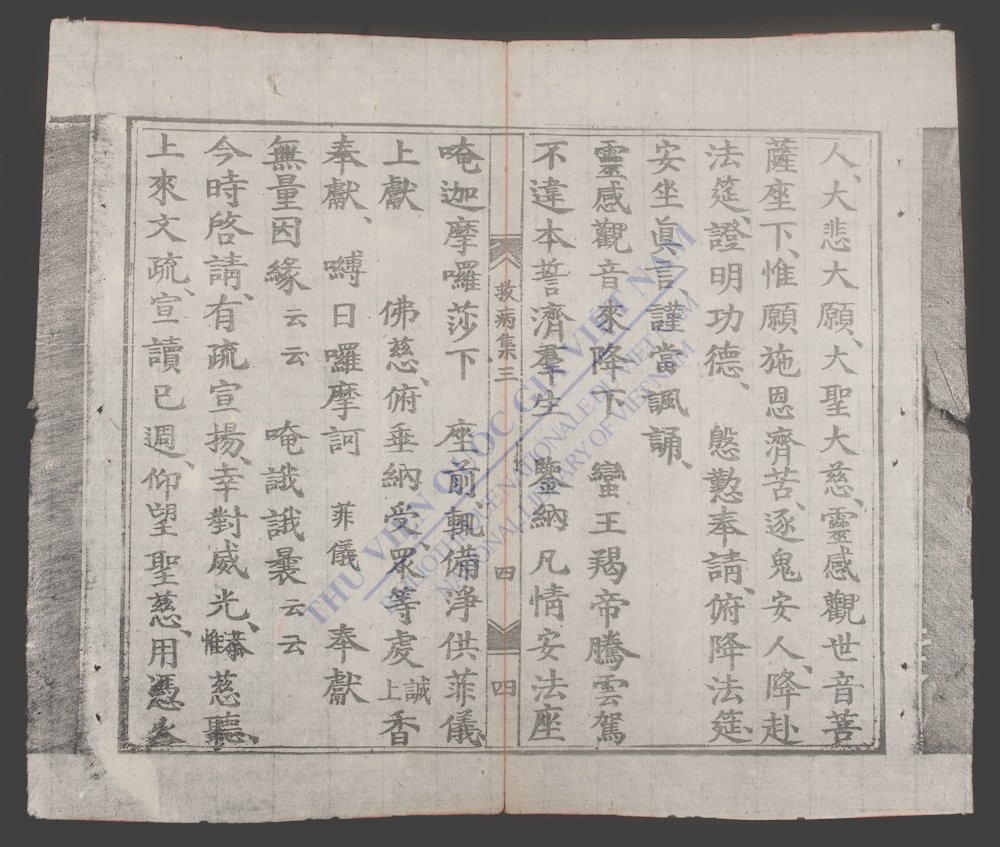 人、大悲大願、大聖大慈、靈感觀世音菩
薩座下、惟願施恩濟苦、逐鬼安人、降赴
法筵、證明功德、慇懃奉請、俯降法筵、
安坐眞言、謹當諷誦、
靈感觀音來降下 蠻王羯帝騰雲駕
不違本誓濟羣生 鑒納凡情安法座
救病集三 四 四
唵迦摩囉莎下 座前、輒備淨供菲儀、
上獻 佛慈、俯垂納受、眾等虔誠上香
奉獻、嚩日囉摩訶 菲儀 奉獻
無量因緣云云 唵誐誐曩云云
今時啓請、有疏宣揚、幸對威光、恭惟慈聽、
上來文疏、宣讀已週、仰望聖慈、用憑
THƯ VIỆN QUỐC GIA VIỆT NAM
NATIONAL LIBRARY OF VIETNAM